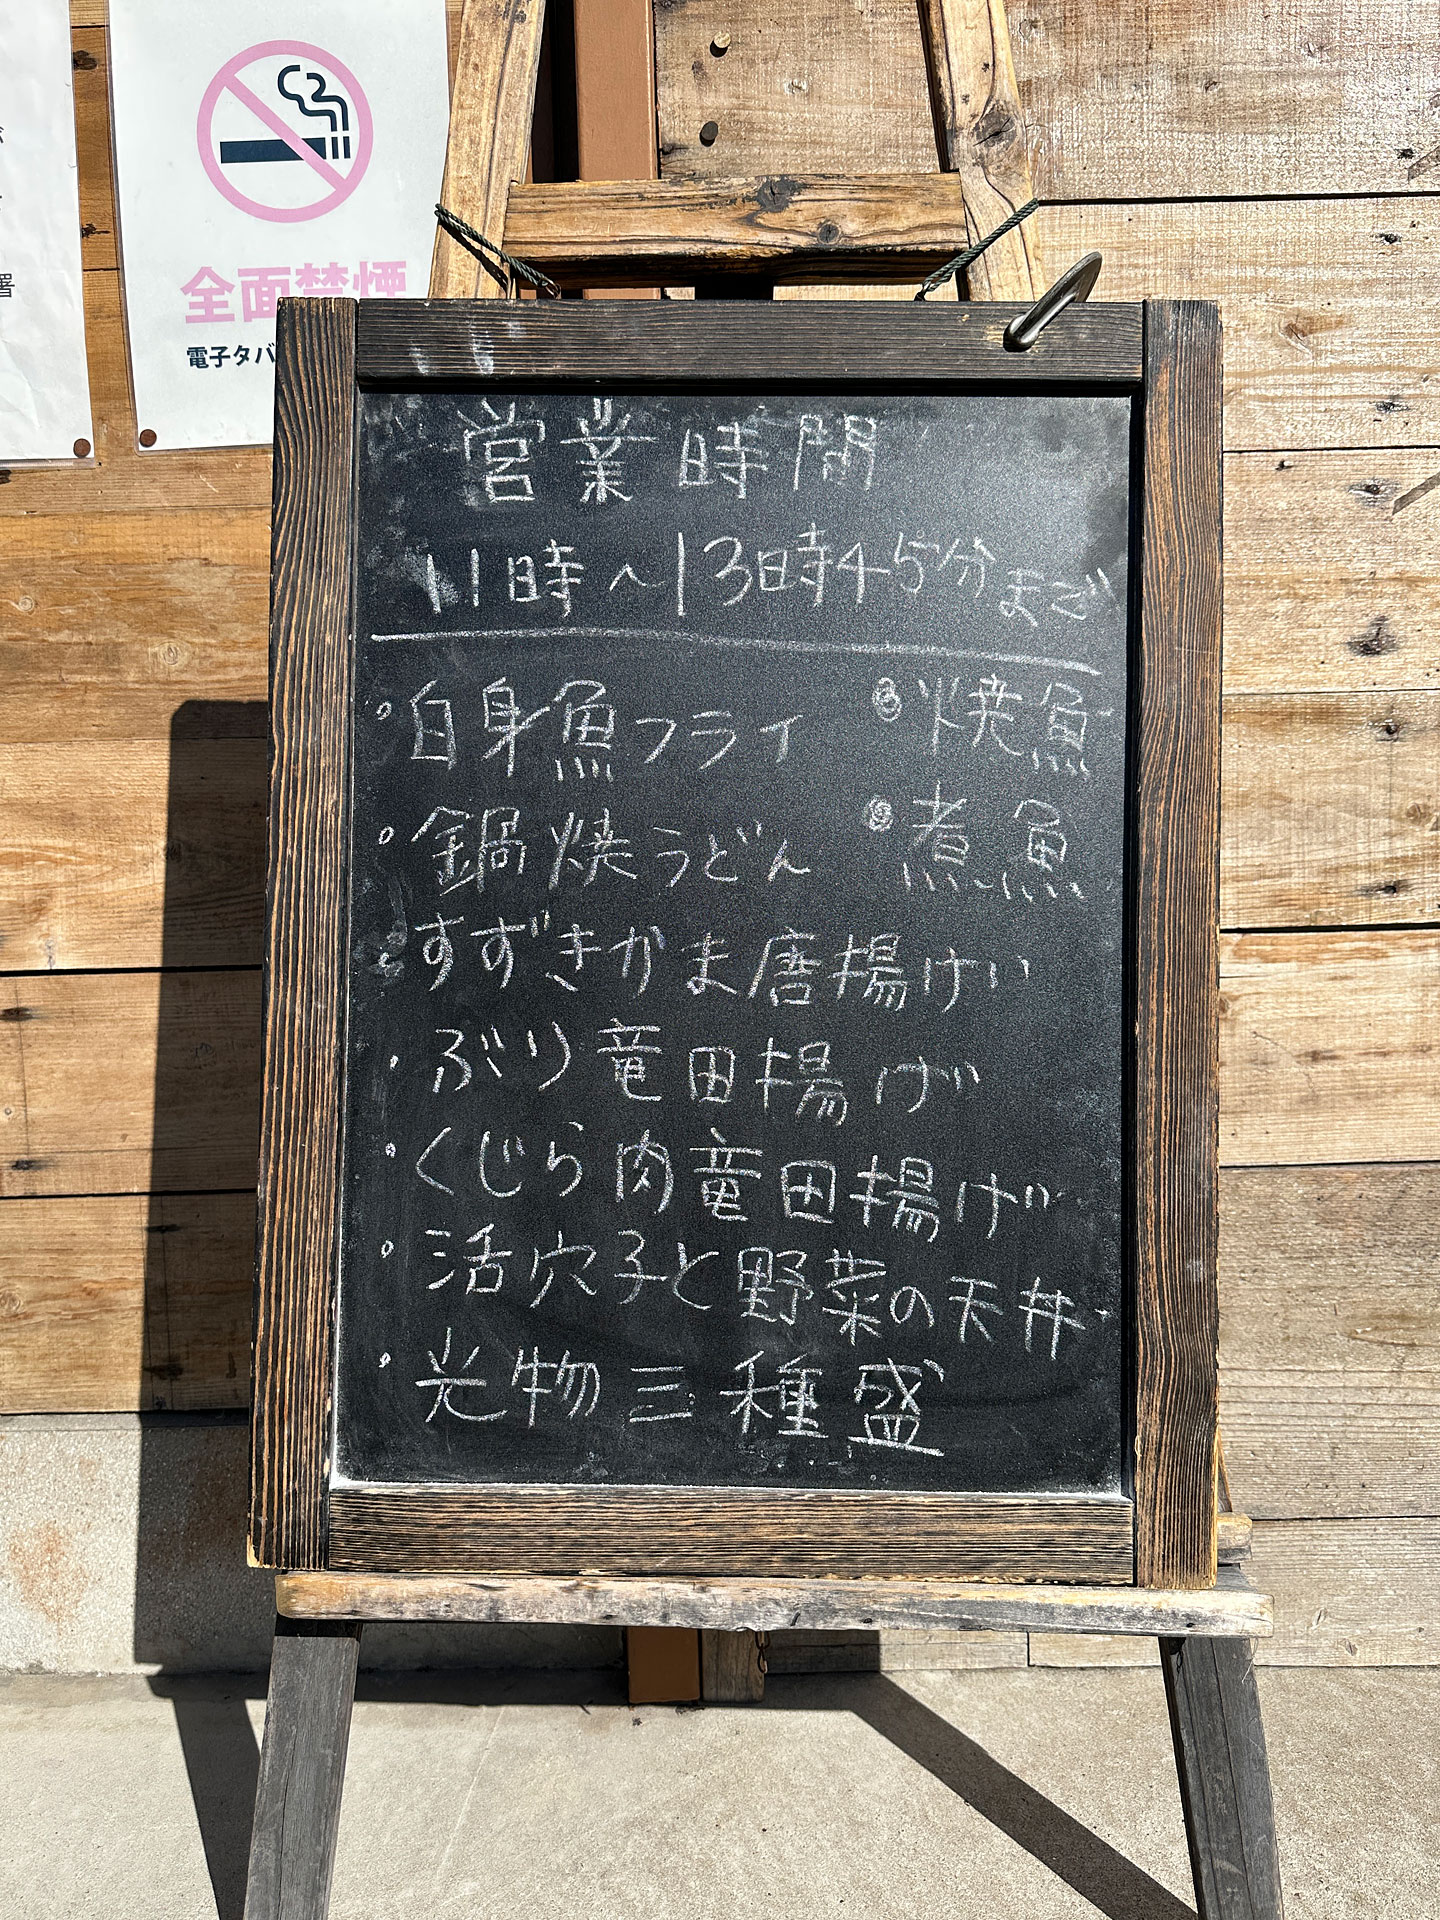 全面禁煙
電子タバ
署
営業時間
11時〜13時45分まで
◦白身魚フライ
◦焼魚
◦鍋焼うどん
◦煮魚
◦すずきかま唐揚げ
・ぶり竜田揚げ
◦くじら肉竜田揚げ
◦活穴子と野菜の天丼
◦光物三種盛